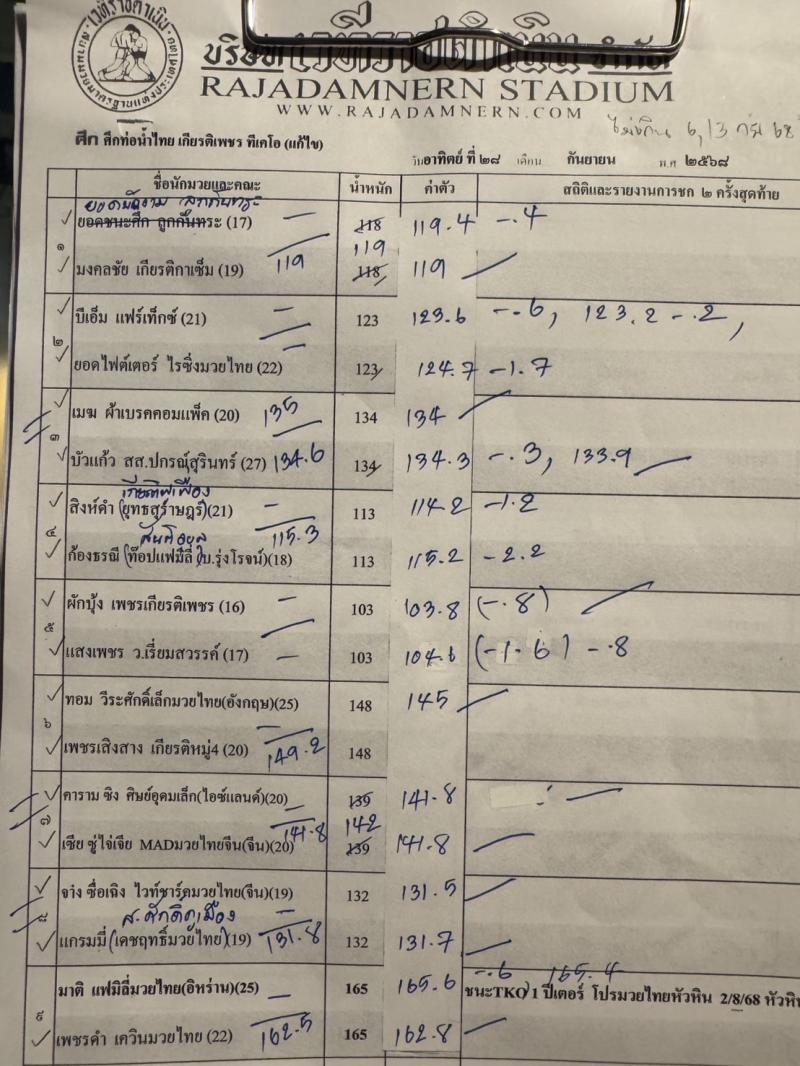 บริษัท เวทีราชดำเนิน จำกัด
RAJADAMNERN STADIUM
WWW.RAJADAMNERN.COM
ศึก ศึกท่อน้ำไทย เกียรติเพชร ทีเคโอ (แก้ไข)
วันอาทิตย์ ที่ ๒๘ เดือน กันยายน พ.ศ ๒๕๖๘
ชื่อนักมวยและคณะ น้ำหนัก ค่าตัว สถิติและรายงานการชก ๒ ครั้งสุดท้าย
ลูกกันทระ
๑ ยอดชนะศึก ลูกกันทระ (17) — 118 119.4 -.4
119
มงคลชัย เกียรติกาเซ็ม (19) 119 118 119
๒ บีเอ็ม แฟร์เท็กซ์ (21) — 123 123.6 -.6, 123.2 -.2,
ยอดไฟต์เตอร์ ไรซิ่งมวยไทย (22) — 123 124.7 -1.7
๓ เมฆ ผ้าเบรคคอมแพ็ค (20) 135 134 134
บัวแก้ว สส.ปกรณ์สุรินทร์ (27) 134.6 134 134.3 -.3, 133.9
๔ สิงห์คำ (ยุทธสุราษฎร์)(21) — 113 114.2 -1.2
115.3
ก้องธรณี (ท๊อปแฟมิลี่ บ.รุ่งโรจน์)(18) 113 115.2 -2.2
๕ ผักบุ้ง เพชรเกียรติเพชร (16) — 103 103.8 (-.8)
แสงเพชร ว.เรี่ยมสวรรค์ (17) — 103 104.6 (-1.6) -.8
๖ ทอม วีระศักดิ์เล็กมวยไทย(อังกฤษ)(25) — 148 145
เพชรเสิงสาง เกียรติหมู่4 (20) 149.2 148
๗ คาราม ซิง ศิษย์อุดมเล็ก(ไอซ์แลนด์)(20) — 139 141.8
142
เซีย ซู่ไจ่เจีย MADมวยไทยจีน(จีน)(20) 141.8 139 141.8
๘ จาง ซื่อเฉิง ไวท์ชาร์คมวยไทย(จีน)(19) — 132 131.5
แกรมมี่ (เดชฤทธิ์มวยไทย)(19) 131.8 132 131.7
๙ มาติ แฟมิลี่มวยไทย(อิหร่าน)(25) — 165 165.6 -.6 165.4
ชนะTKO 1 ปีเตอร์ โปรมวยไทยหัวหิน 2/8/68 หัวหิน
เพชรดำ เควินมวยไทย (22) 162.5 165 162.8